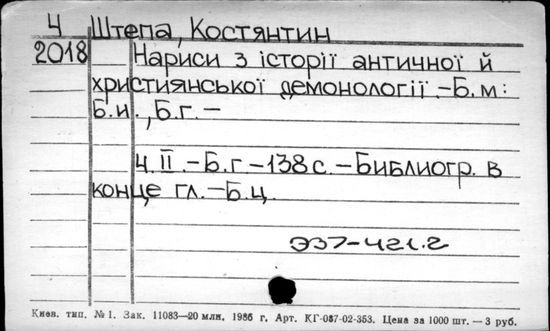 4 Штепа, Костянтин
2018 Нариси з історії античної й
християнської демонології.-Б.м:
Б.и., Б.г. -
Ч. II. -Б.г -138 с. -Библиогр. в
конце гл. -Б.ц.
Э37-421.2
Киев. тип. № 1. Зак. 11083—20 млн. 1986 г. Арт. КГ-087-02-353. Цена за 1000 шт. — 3 руб.